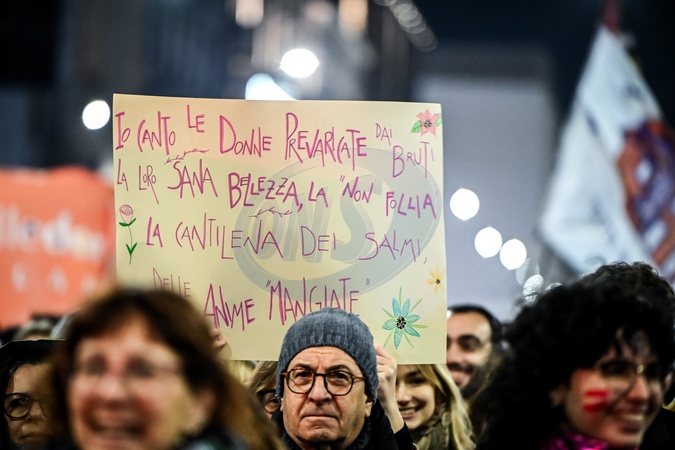 Io CANTO LE DONNE PREVARICATE DAI BRUTI
LA LORO SANA BELLEZZA, LA "NON FOLLIA"
LA CANTILENA DEI SALMI,
DELLE ANIME "MANGIATE"